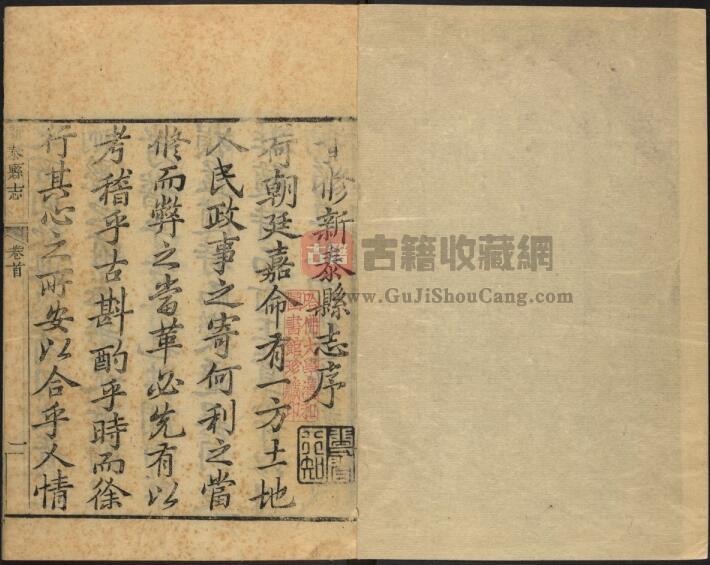 修新泰縣志序
荷朝廷嘉命有一方土地
人民政事之寄何利之當
修而弊之當革必先有以
考稽乎古斟酌乎時而徐
行其心之所安以合乎人情
泰縣志
卷首
哈佛大學漢和
圖書館珍藏印
古籍
古籍收藏網
www.GuJiShouCang.com